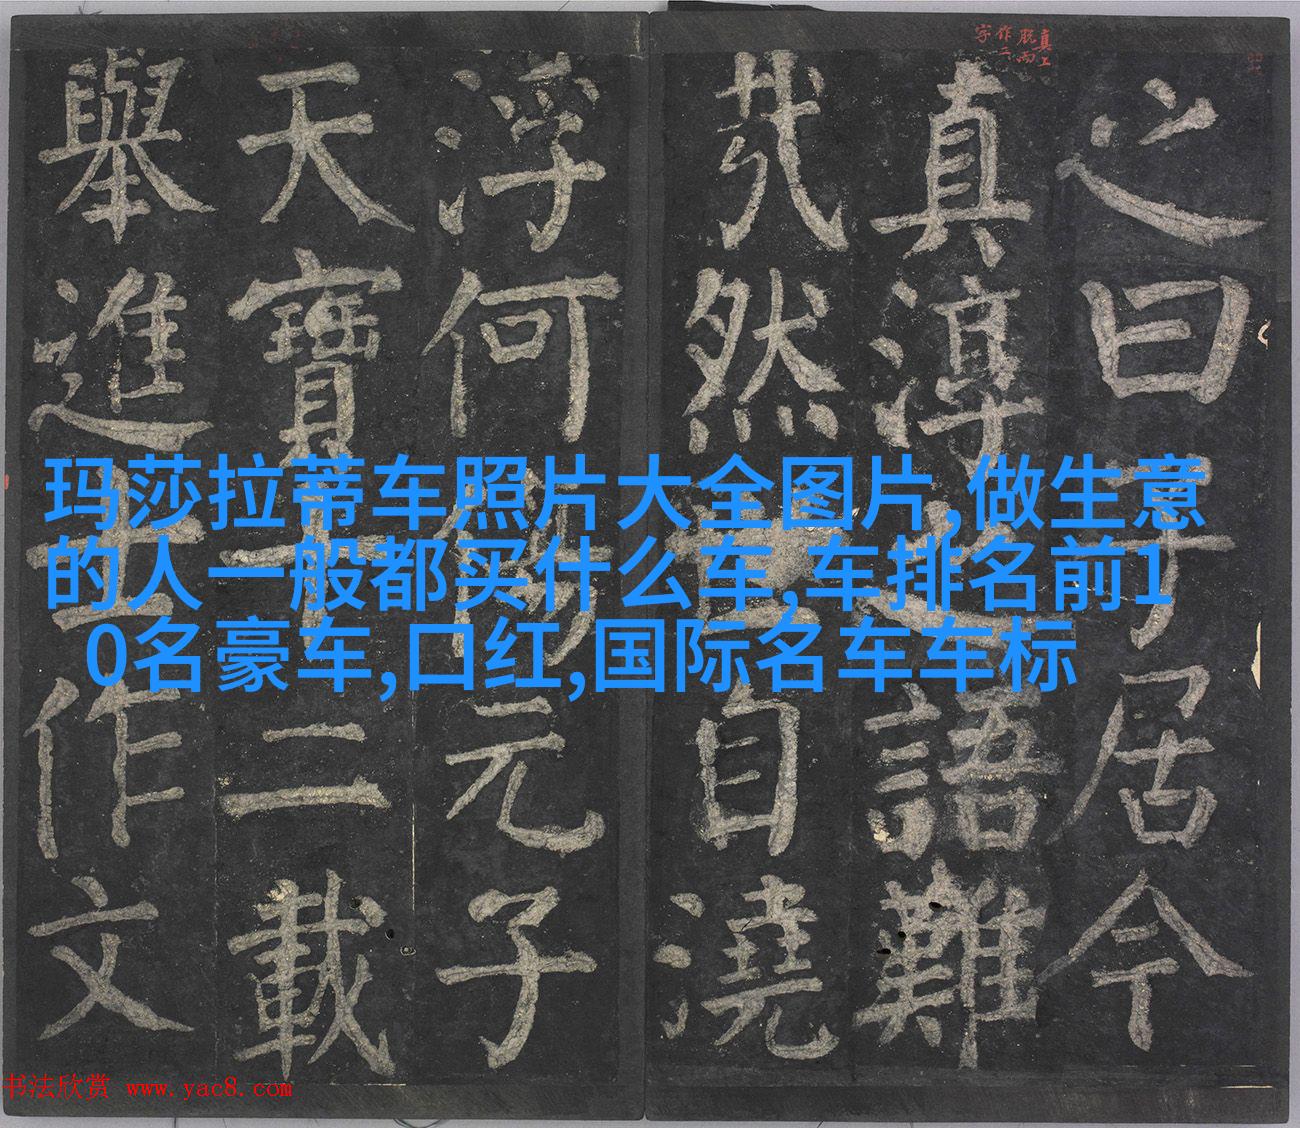 真上
脫而
作二
字
之曰子居今
真淳之語難
㦲然世自澆
浮何傷元子
天寶十二載
舉進士作文
玛莎拉蒂车照片大全图片,做生意
的人一般都买什么车,车排名前1
0名豪车,口红,国际名车车标
书法欣赏 www.yac8.com